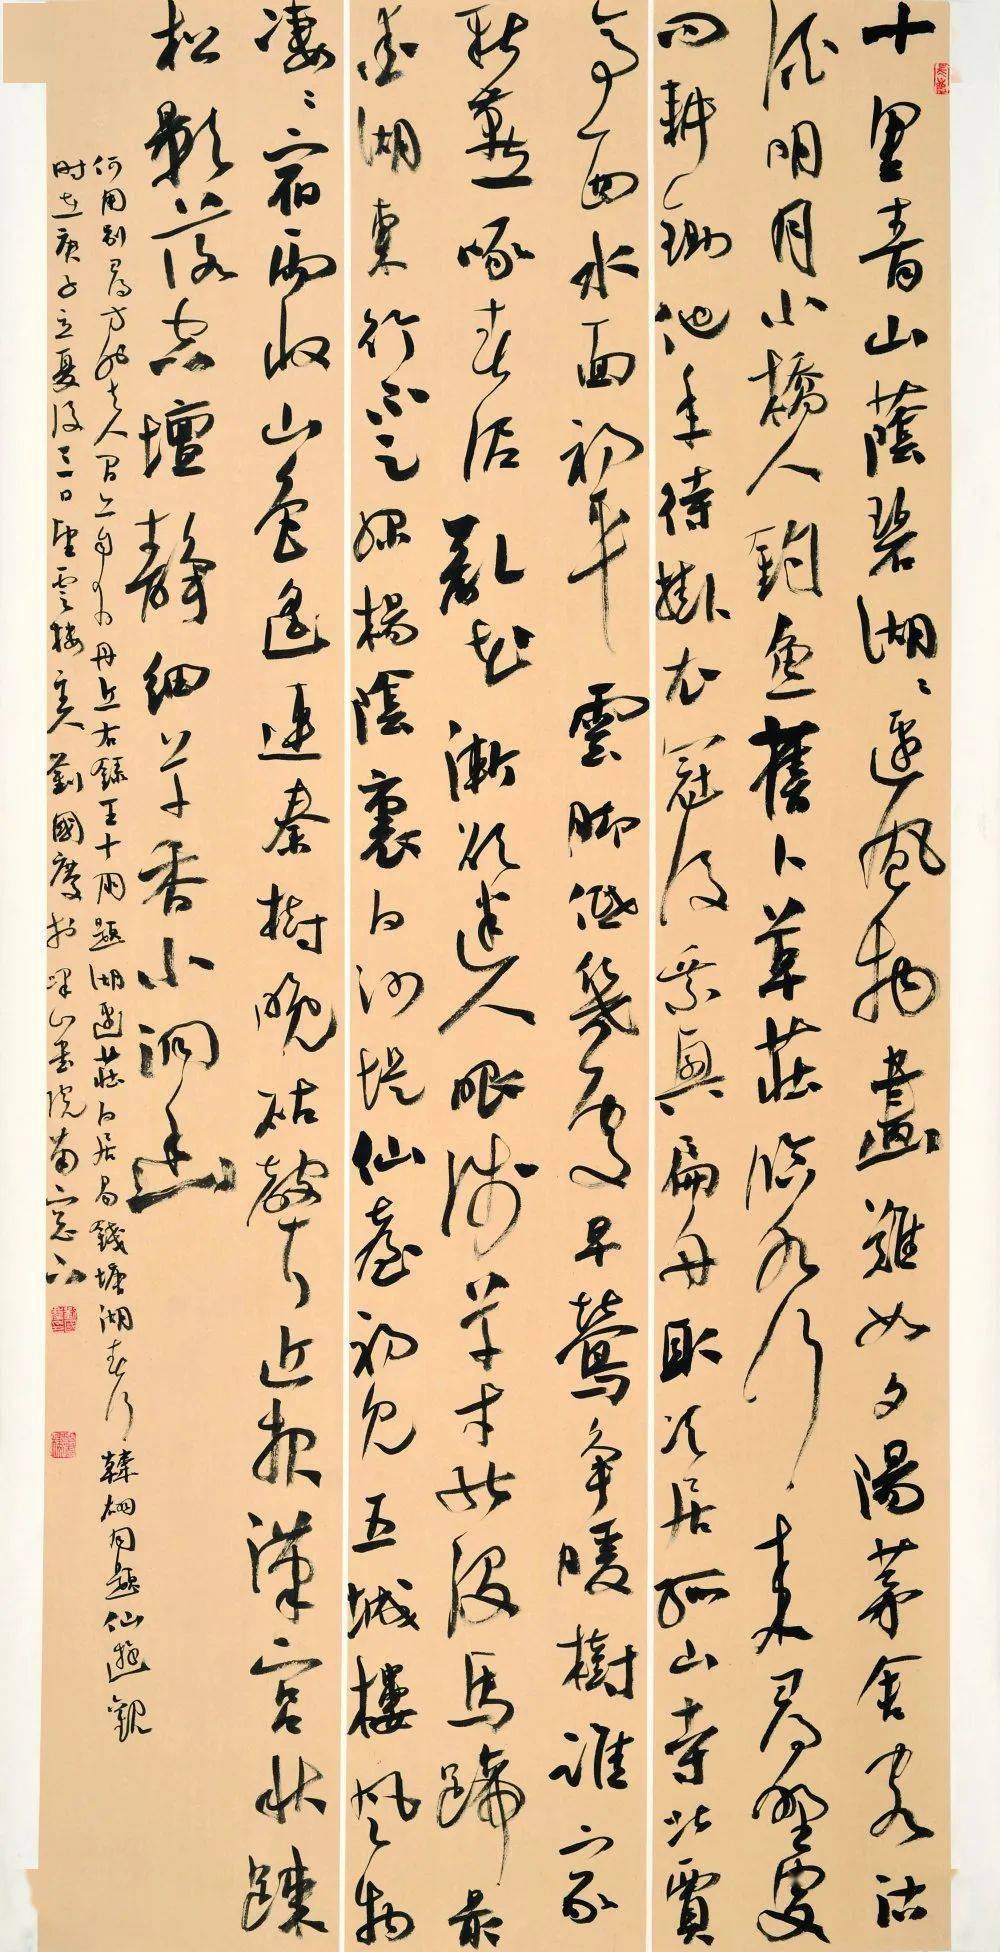 十里青山蔭碧湖〻邊風物畫難如夕陽茅舍客沽
酒明月小橋人釣魚舊卜草莊臨水竹來尋野叟
問耕鋤他年待掛衣冠後乘興扁舟取次居孤山寺北賈
亭西水面初平雲腳低幾處早鶯爭暖樹誰家
新燕啄春泥亂花漸欲迷人眼淺草才能沒馬蹄最
愛湖東行不足綠楊陰裏白沙堤仙臺初見五城樓風物
凄〻宿雨收山色遙連秦樹晚砧聲近報漢宮秋疎
松影落空壇靜細草香小洞幽
何用別尋方外去人間亦自有丹丘右錄王十朋題湖邊莊白居易錢塘湖春行韓翃同題仙遊觀
时在庚子立夏後三日雲樓主人劉國慶於山書院南窗下